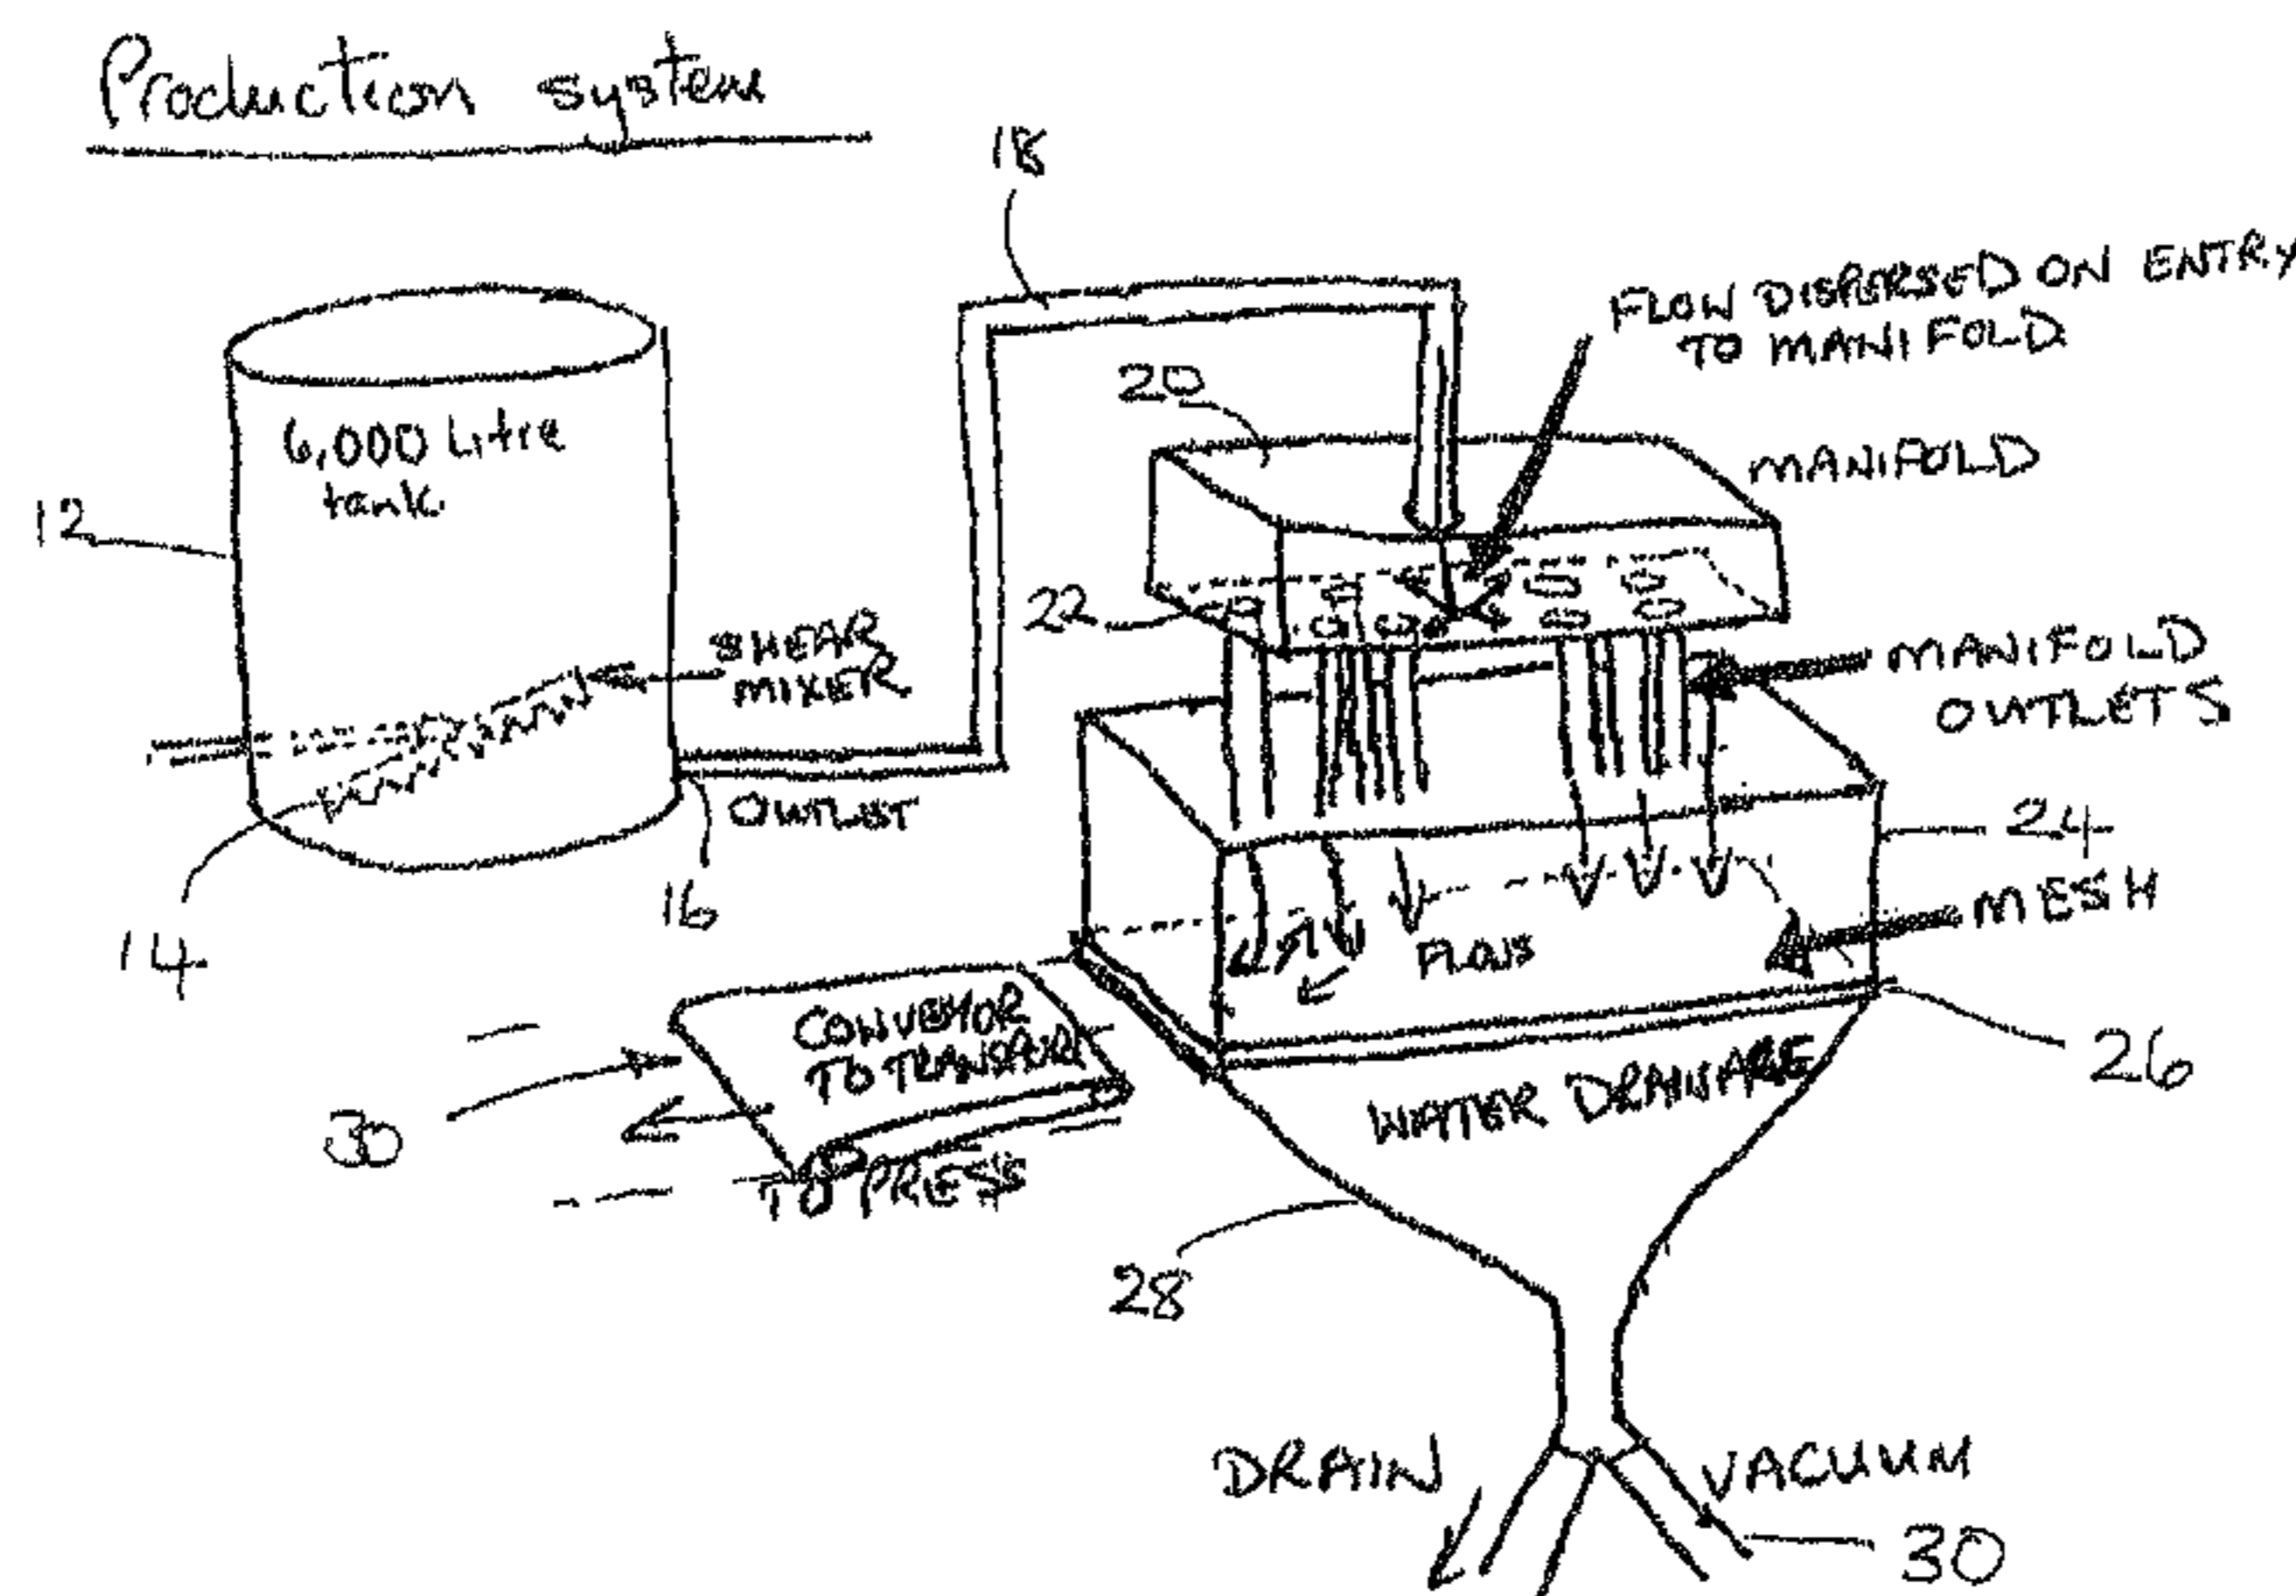 Production system
18
FLOW DISPERSED ON ENTRY
TO MANIFOLD
20
MANIFOLD
6,000 Litre
tank
12
22
SHEAR
MIXER
MANIFOLD
OUTLETS
OUTLET
24
16
14
MESH
FLOWS
CONVEYOR
TO TRANSPORT
TO PRESS
30
26
WATER DRAINAGE
28
DRAIN
VACUUM
30